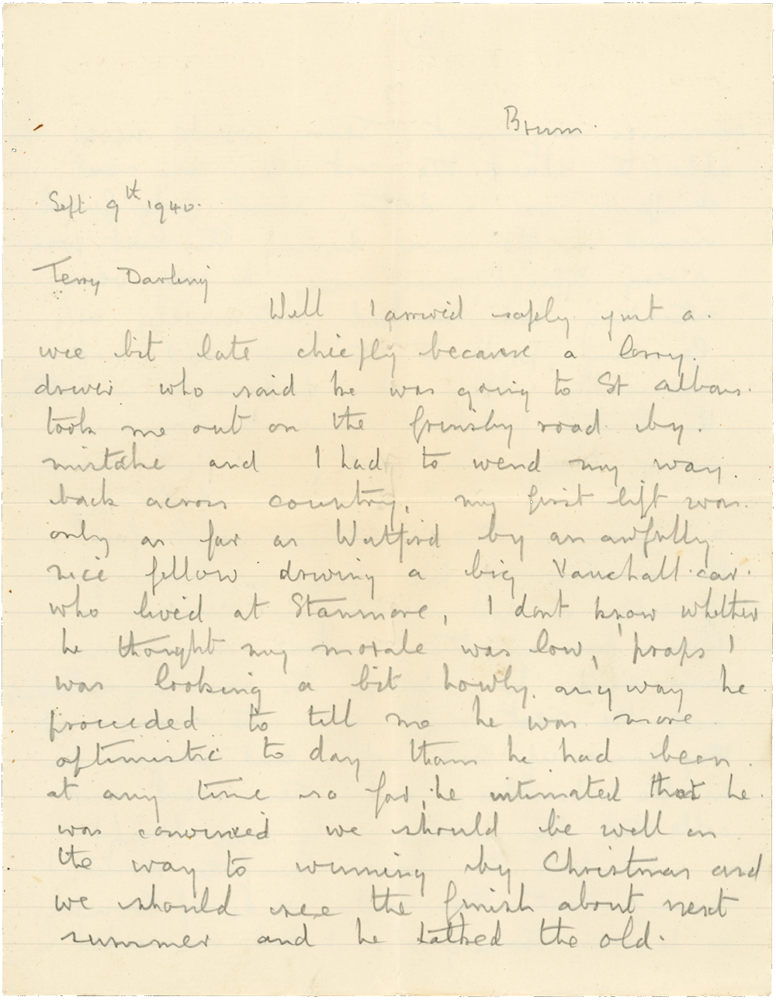 Brum.
Sept 9th 1940.
Terry Darling
Well I arrived safely just a.
wee bit late chiefly because a lorry.
driver who said he was going to St Albans.
took me out on the Grimsby road by.
mistake and I had to wend my way.
back across country, my first lift was.
only as far as Watford by an awfully
nice fellow driving a big Vauxhall car.
who lived at Stanmore, I dont know whether
he thought my morale was low, 'praps I
was looking a bit howly. any way he
proceeded to tell me he was more
optimistic to day than he had been.
at any time so far, he intimated that he
was convinced we should be well on
the way to winning by Christmas and
we should see the finish about next
summer and he talked the old.